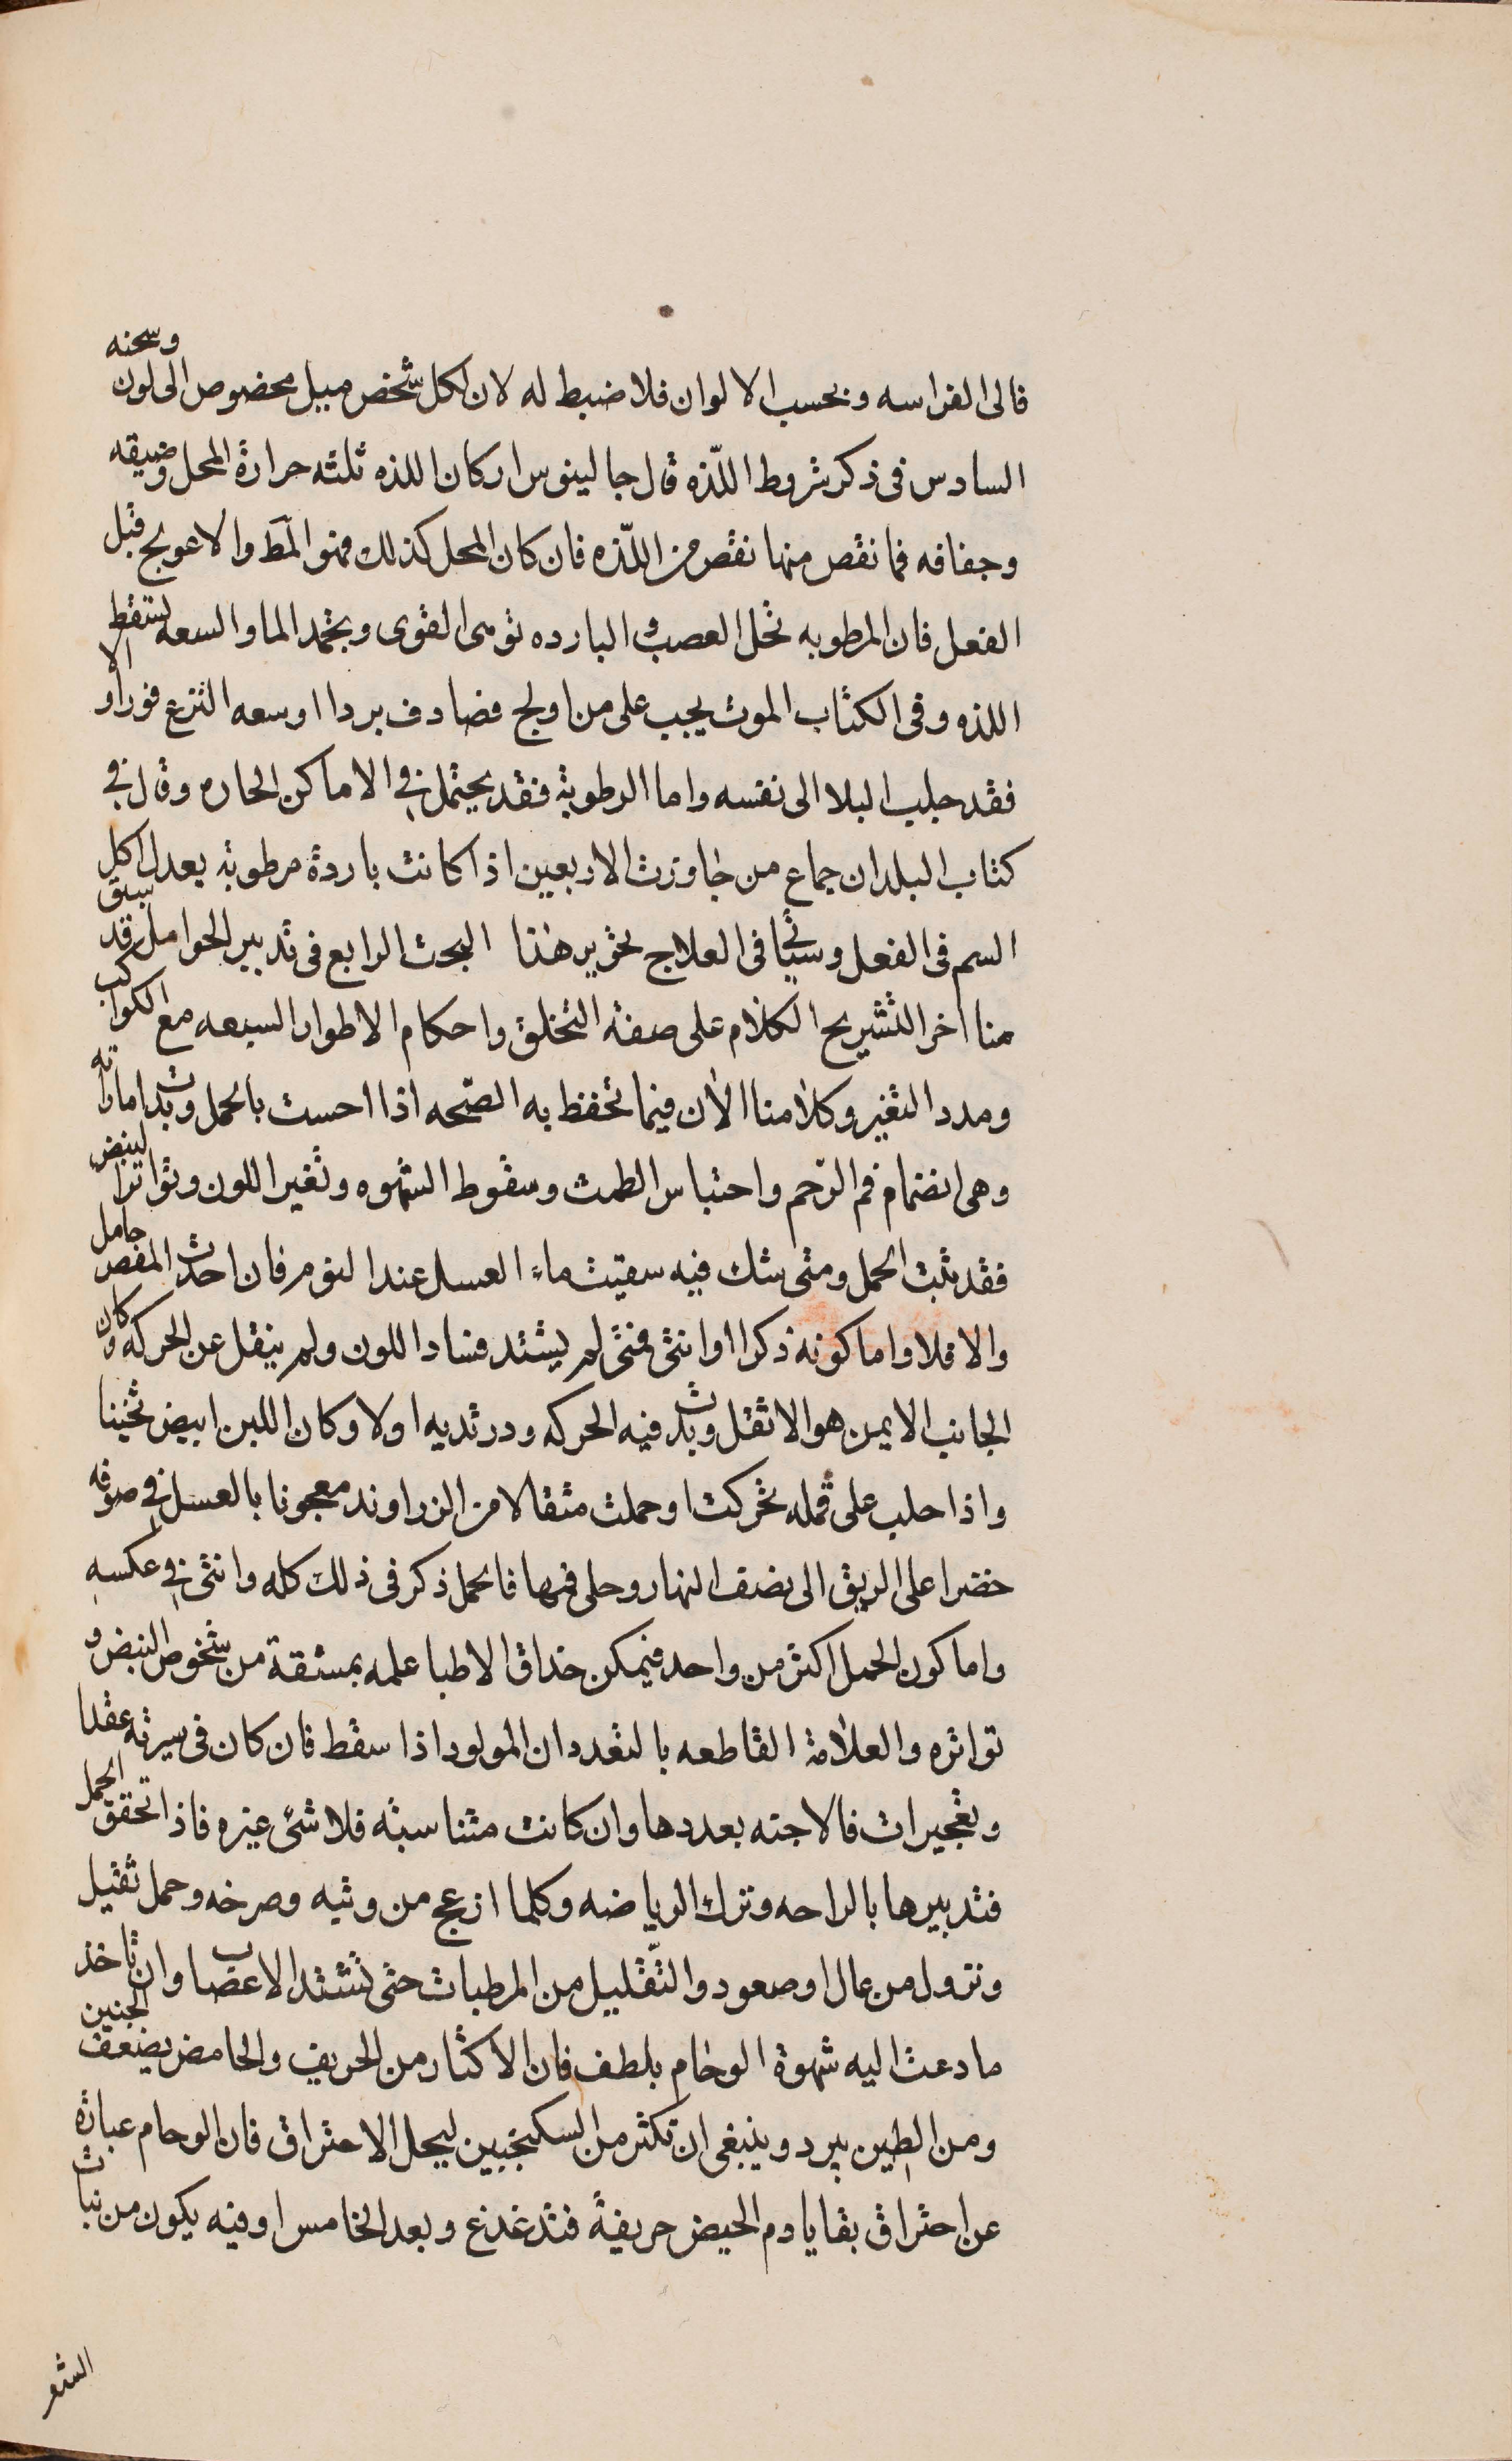 فالى الفراسه وبحسب الالوان فلا ضبط له لان لكل شخص ميل مخصوص الى لون وسحنه
السادس فى ذكر شروط اللّذه قال جالينوس اركان اللذه ثلثه حرارة المحل وضيقه
وجفافه فما نقص منها نقص من اللّذه فان كان المحل كذلك فهو المط والا عولج قبل
الفعل فان المرطوبه تحل العصب و البارده توهى القوى وبتجمد الما والسعه تسقط
اللذه وفى الكتاب الموت يجب على من اولج فصادف بردا او سعه النزع فورا و الا
فقد جلب البلا الى نفسه واما الرطوبة فقد يحتمل فى الاماكن الحاره وقال فى
كتاب البلدان جماع من جاوزت الاربعين اذا كانت باردة مرطوبة يعدل اكل
السم فى الفعل وسياتى فى العلاج تحرير هذا البحث الرابع فى تدبير الحوامل وقد سبق
منا اخر التشريح الكلام على صفة التخلق واحكام الاطوار السبعه مع الكواكب
ومدد التغير وكلامنا الان فيما تحفظ به الصّحه اذا احست بالحمل وبدات اماراته
وهى انضمام فم الرّحم واحتباس الطمث وسقوط الشهوه وتغير اللون وتواتر النبض
فقد ثبت الحمل ومتى شك فيه سقيت ماء العسل عند النوم فان احدث المغص حامل
والا فلا واما كونه ذكرا او انثى فمتى لم يشتد فساد اللون ولم يثقل عن الحركه وكان
الجانب الايمن هو الاثقل وبدت فيه الحركه ودر ثديه اولا وكان اللبن ابيض ثخينا
واذا حلب على قمله تحركت او حملت مثقالا من الزراوند معجونا بالعسل فى صوفه
خضرا على الريق الى نصف النهار وحلى فمها فالحمل ذكر فى ذلك كله وانثى فى عكسه
واما كون الحمل اكثر من واحد فيمكن حذاق الاطبا علمه بمشقة من شخوص النبض و
تواتره والعلامة القاطعه بالتعدد ان المولود اذا سقط فان كان فى سيرته عقدا
وتعجيرات فالاجنه بعددها وان كانت متناسبة فلا شئ غيره فاذا تحقق الحمل
فتدبيرها بالراحه وترك الرياضه وكلما ازعج من وثبه وصرخه وحمل ثقيل
ونزول من عال او صعود والتّقليل من المرطبات حتى تشتد الاعصاب وان تاخذ
ما دعت اليه شهوة الوحام بلطف فان الاكثار من الحريف والحامض يضعف الجنين
ومن الطين يبرد وينبغى ان تكثر من السكنجبين ليحل الاحتراق فان الوحام عبارة
عن احتراق بقايا دم الحيض حريفة فتدغدغ وبعد الخامس او فيه يكون من نبات
الشعر